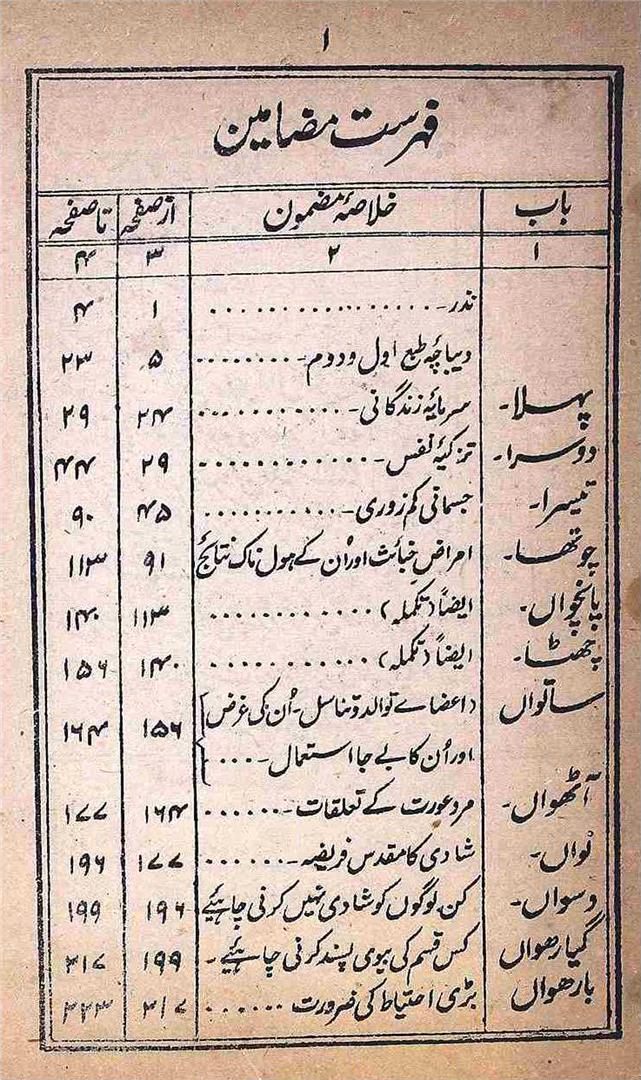 ۱
فہرست مضامین
باب خلاصۂ مضمون از صفحہ تا صفحہ
۱ ۲ ۳ ۴
نذر۔ ۱ ۴
دیباچہ طبع اول و دوم۔ ۵ ۲۳
پہلا۔ سرمایۂ زندگانی۔ ۲۴ ۲۹
دوسرا۔ تزکیۂ نفس۔ ۲۹ ۴۴
تیسرا۔ جسمانی کم زوری۔ ۴۵ ۹۰
چوتھا۔ امراض خبائث اور اُن کے ہول ناک نتائج ۹۱ ۱۱۳
پانچواں۔ ایضاً (تکملہ) ۱۱۳ ۱۴۰
چھٹا۔ ایضاً (تکملہ) ۱۴۰ ۱۵۶
ساتواں اعضاے توالد و تناسل۔ اُن کی غرض ۱۵۶ ۱۶۴
اور اُن کا بے جا استعمال۔
آٹھواں۔ مرد عورت کے تعلقات۔ ۱۶۴ ۱۷۷
نواں۔ شادی کا مقدس فریضہ۔ ۱۷۷ ۱۹۶
دسواں۔ کن لوگوں کو شادی نہیں کرنی چاہئیے ۱۹۶ ۱۹۹
گیارھواں کس قسم کی بیوی پسند کرنی چاہئیے۔ ۱۹۹ ۲۱۷
بارھواں بڑی احتیاط کی ضرورت ۲۱۷ ۲۲۳